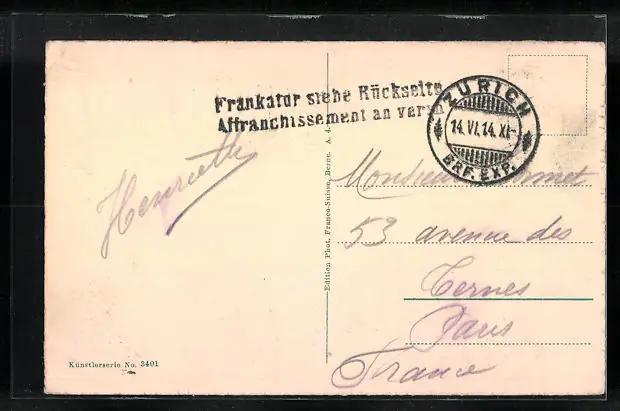 Frankatur siehe Rückseite
Affranchissement au verso
ZÜRICH
14.VI.14.XI-
BRF. EXP.
Henriette
Monsieur
53 avenue des
Ternes
Paris
France
Edition Phot. Franco-Suisse, Berne. A. 4.
Künstlerserie No. 3401